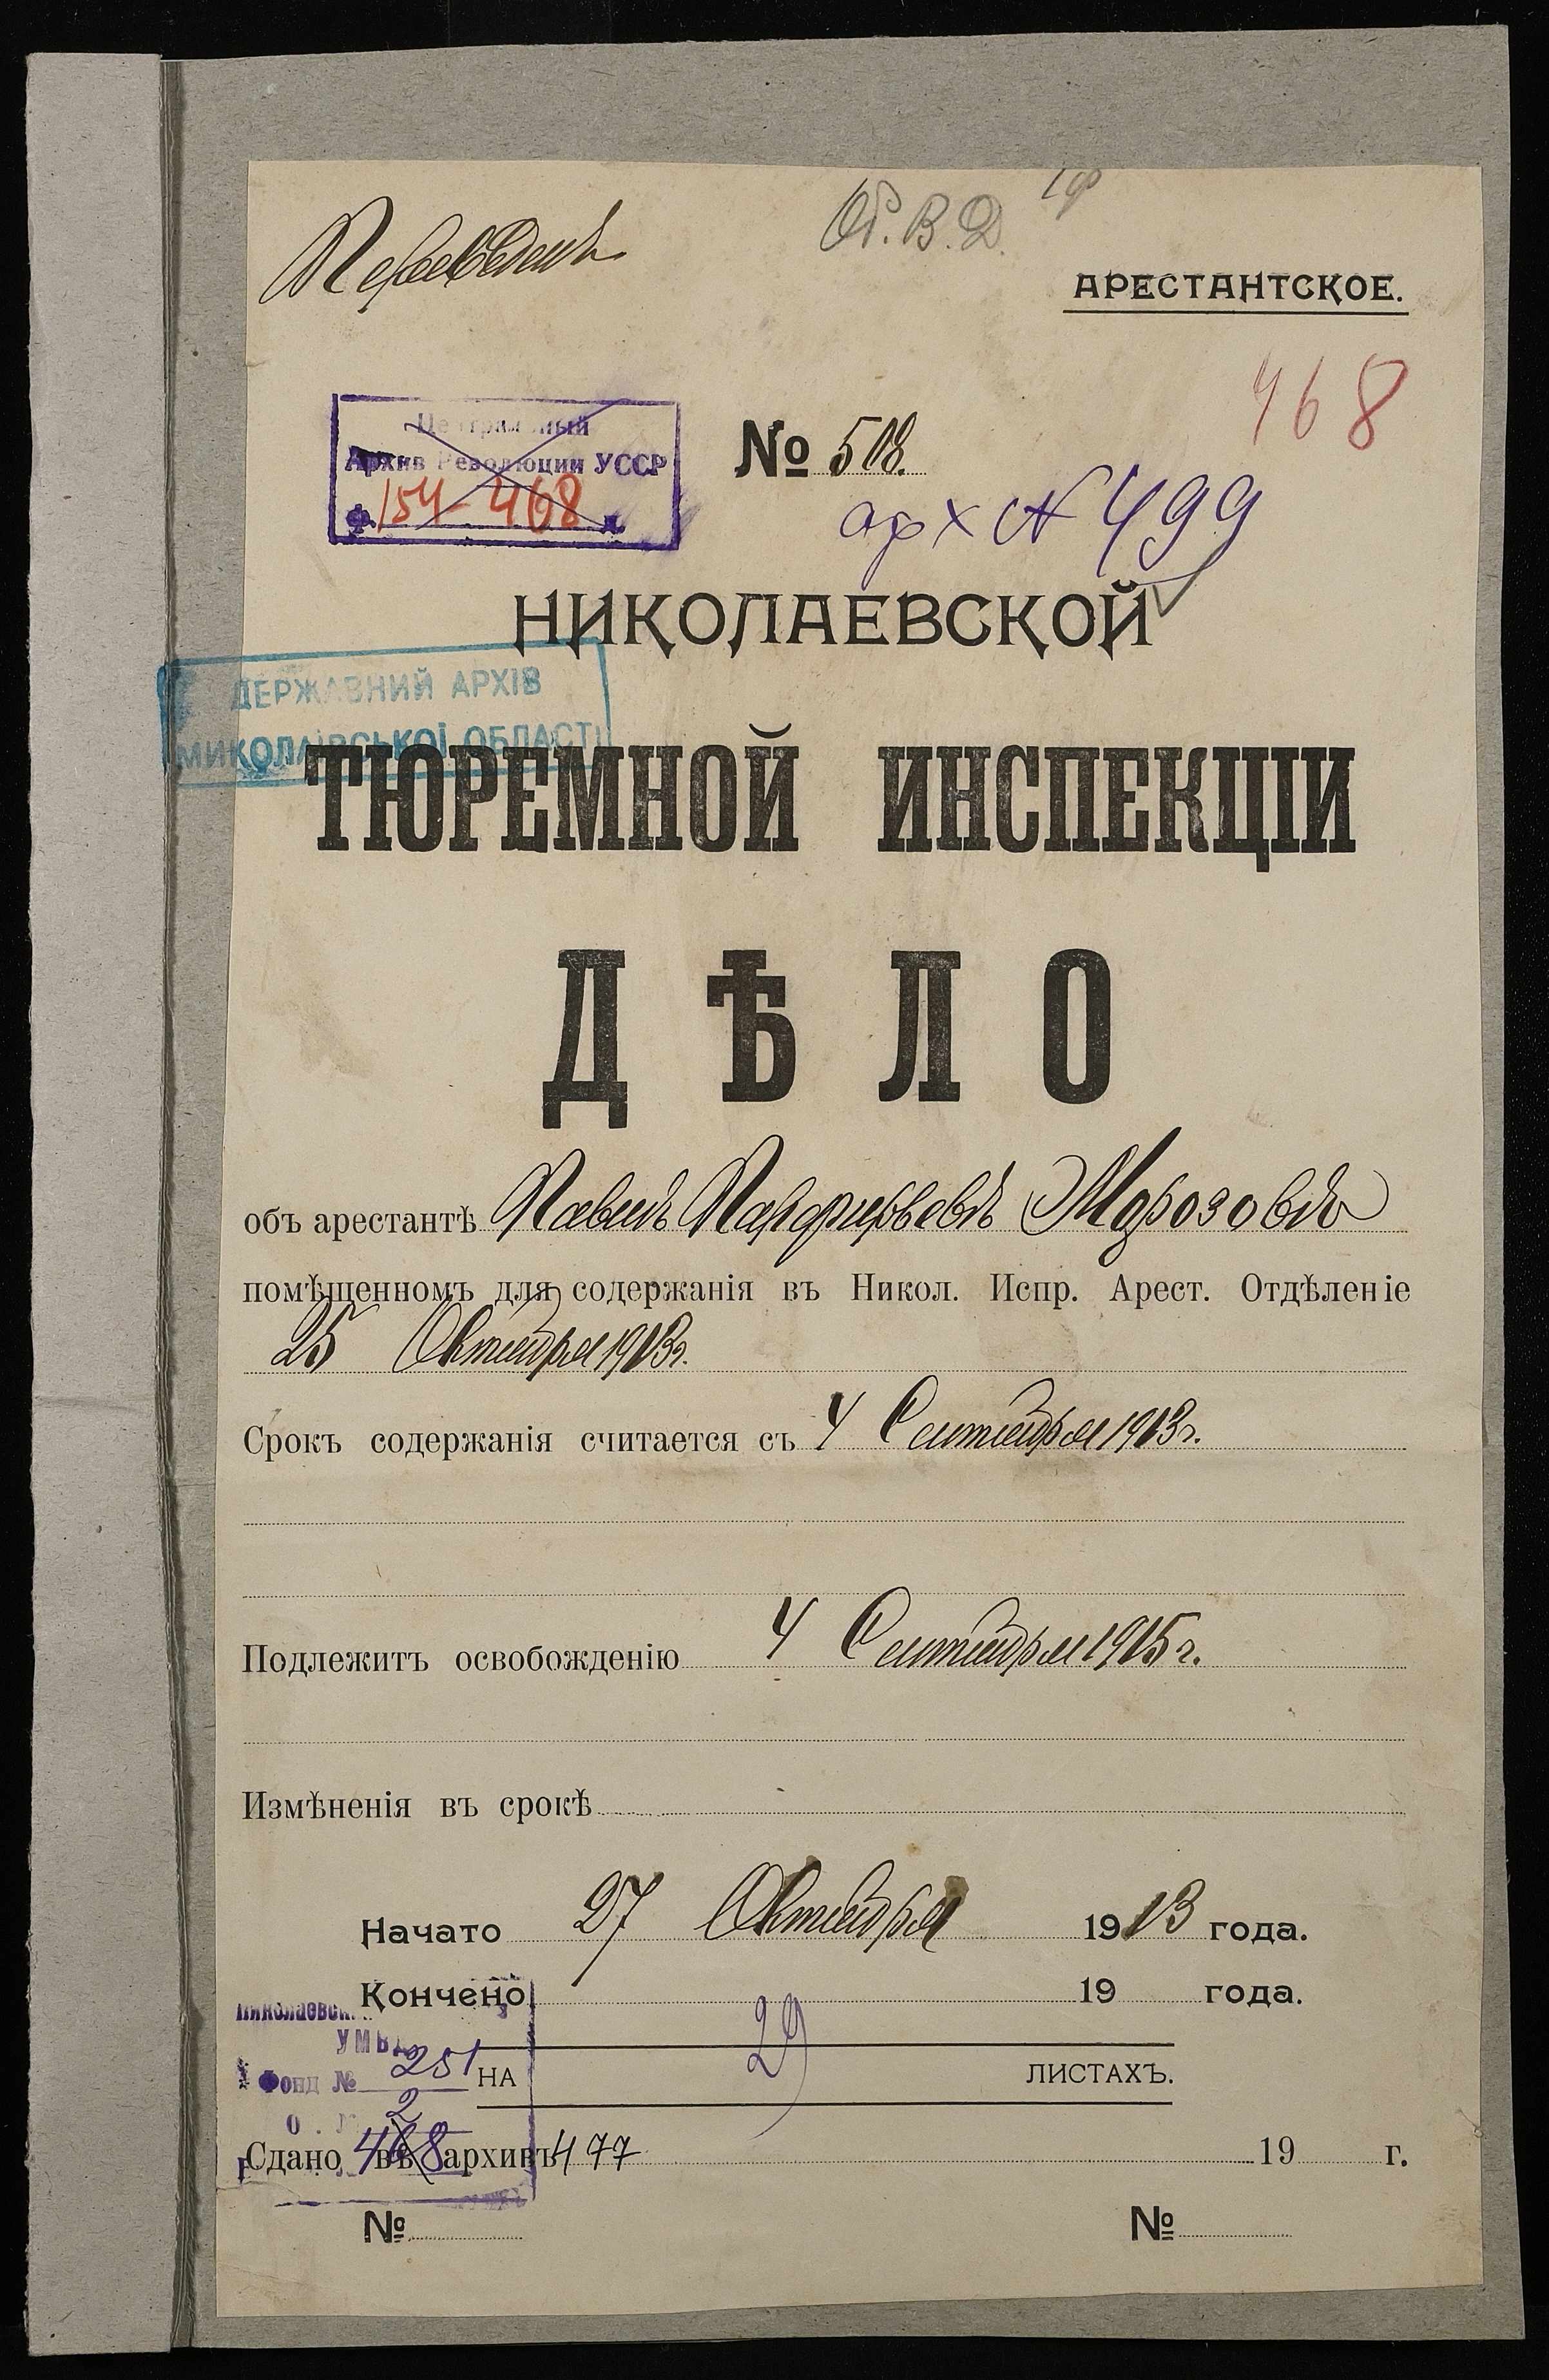 Переведенъ
Ог. В. Д.
АРЕСТАНТСКОЕ.
468
Центральный
Архив Революции УССР
Ф. 154 - 468 д.
№ 508.
арх № 499
НИКОЛАЕВСКОЙ
ДЕРЖАВНИЙ АРХІВ
МИКОЛАЇВСЬКОЇ ОБЛАСТІ
ТЮРЕМНОЙ ИНСПЕКЦІИ
ДѢЛО
объ арестантѣ Павлѣ Парфирьевѣ Морозовѣ
помѣщенномъ для содержанія въ Никол. Испр. Арест. Отдѣленіе
25 Октября 1913 г.
Срокъ содержанія считается съ 4 Сентября 1913 г.
Подлежитъ освобожденію 4 Сентября 1915 г.
Измѣненія въ срокѣ
Начато 27 Октября 1913 года.
Кончено 19 года.
Николаевск
УМВД
Фонд № 251
НА 29 ЛИСТАХЪ.
2
468
Сдано въ архивъ 477 19 г.
№ №